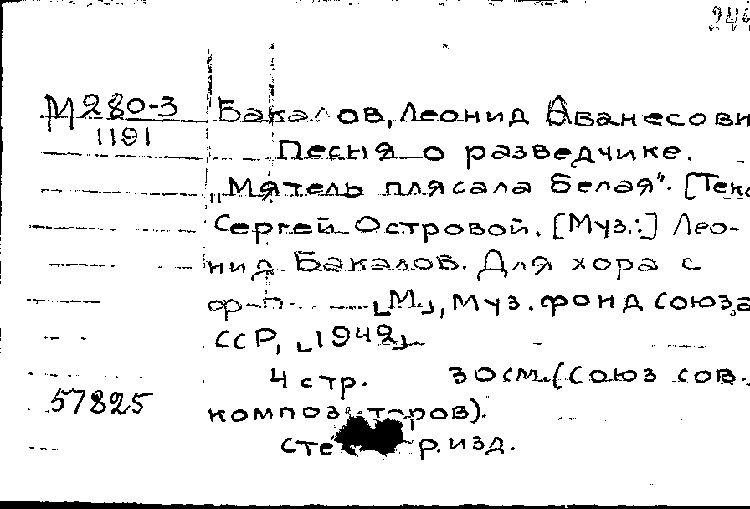 244
М280-3
1191
Бакалов, Леонид Аванесови
Песня о разведчике.
„Мятель плясала белая". [Текс
Сергей Островой. [Муз.:] Лео-
нид Бакалов. Для хора с
ф-п. [М], Муз. фонд союза
ССР, [1942]
4 стр. 30 см. (Союз сов.
57825
композиторов).
изд.